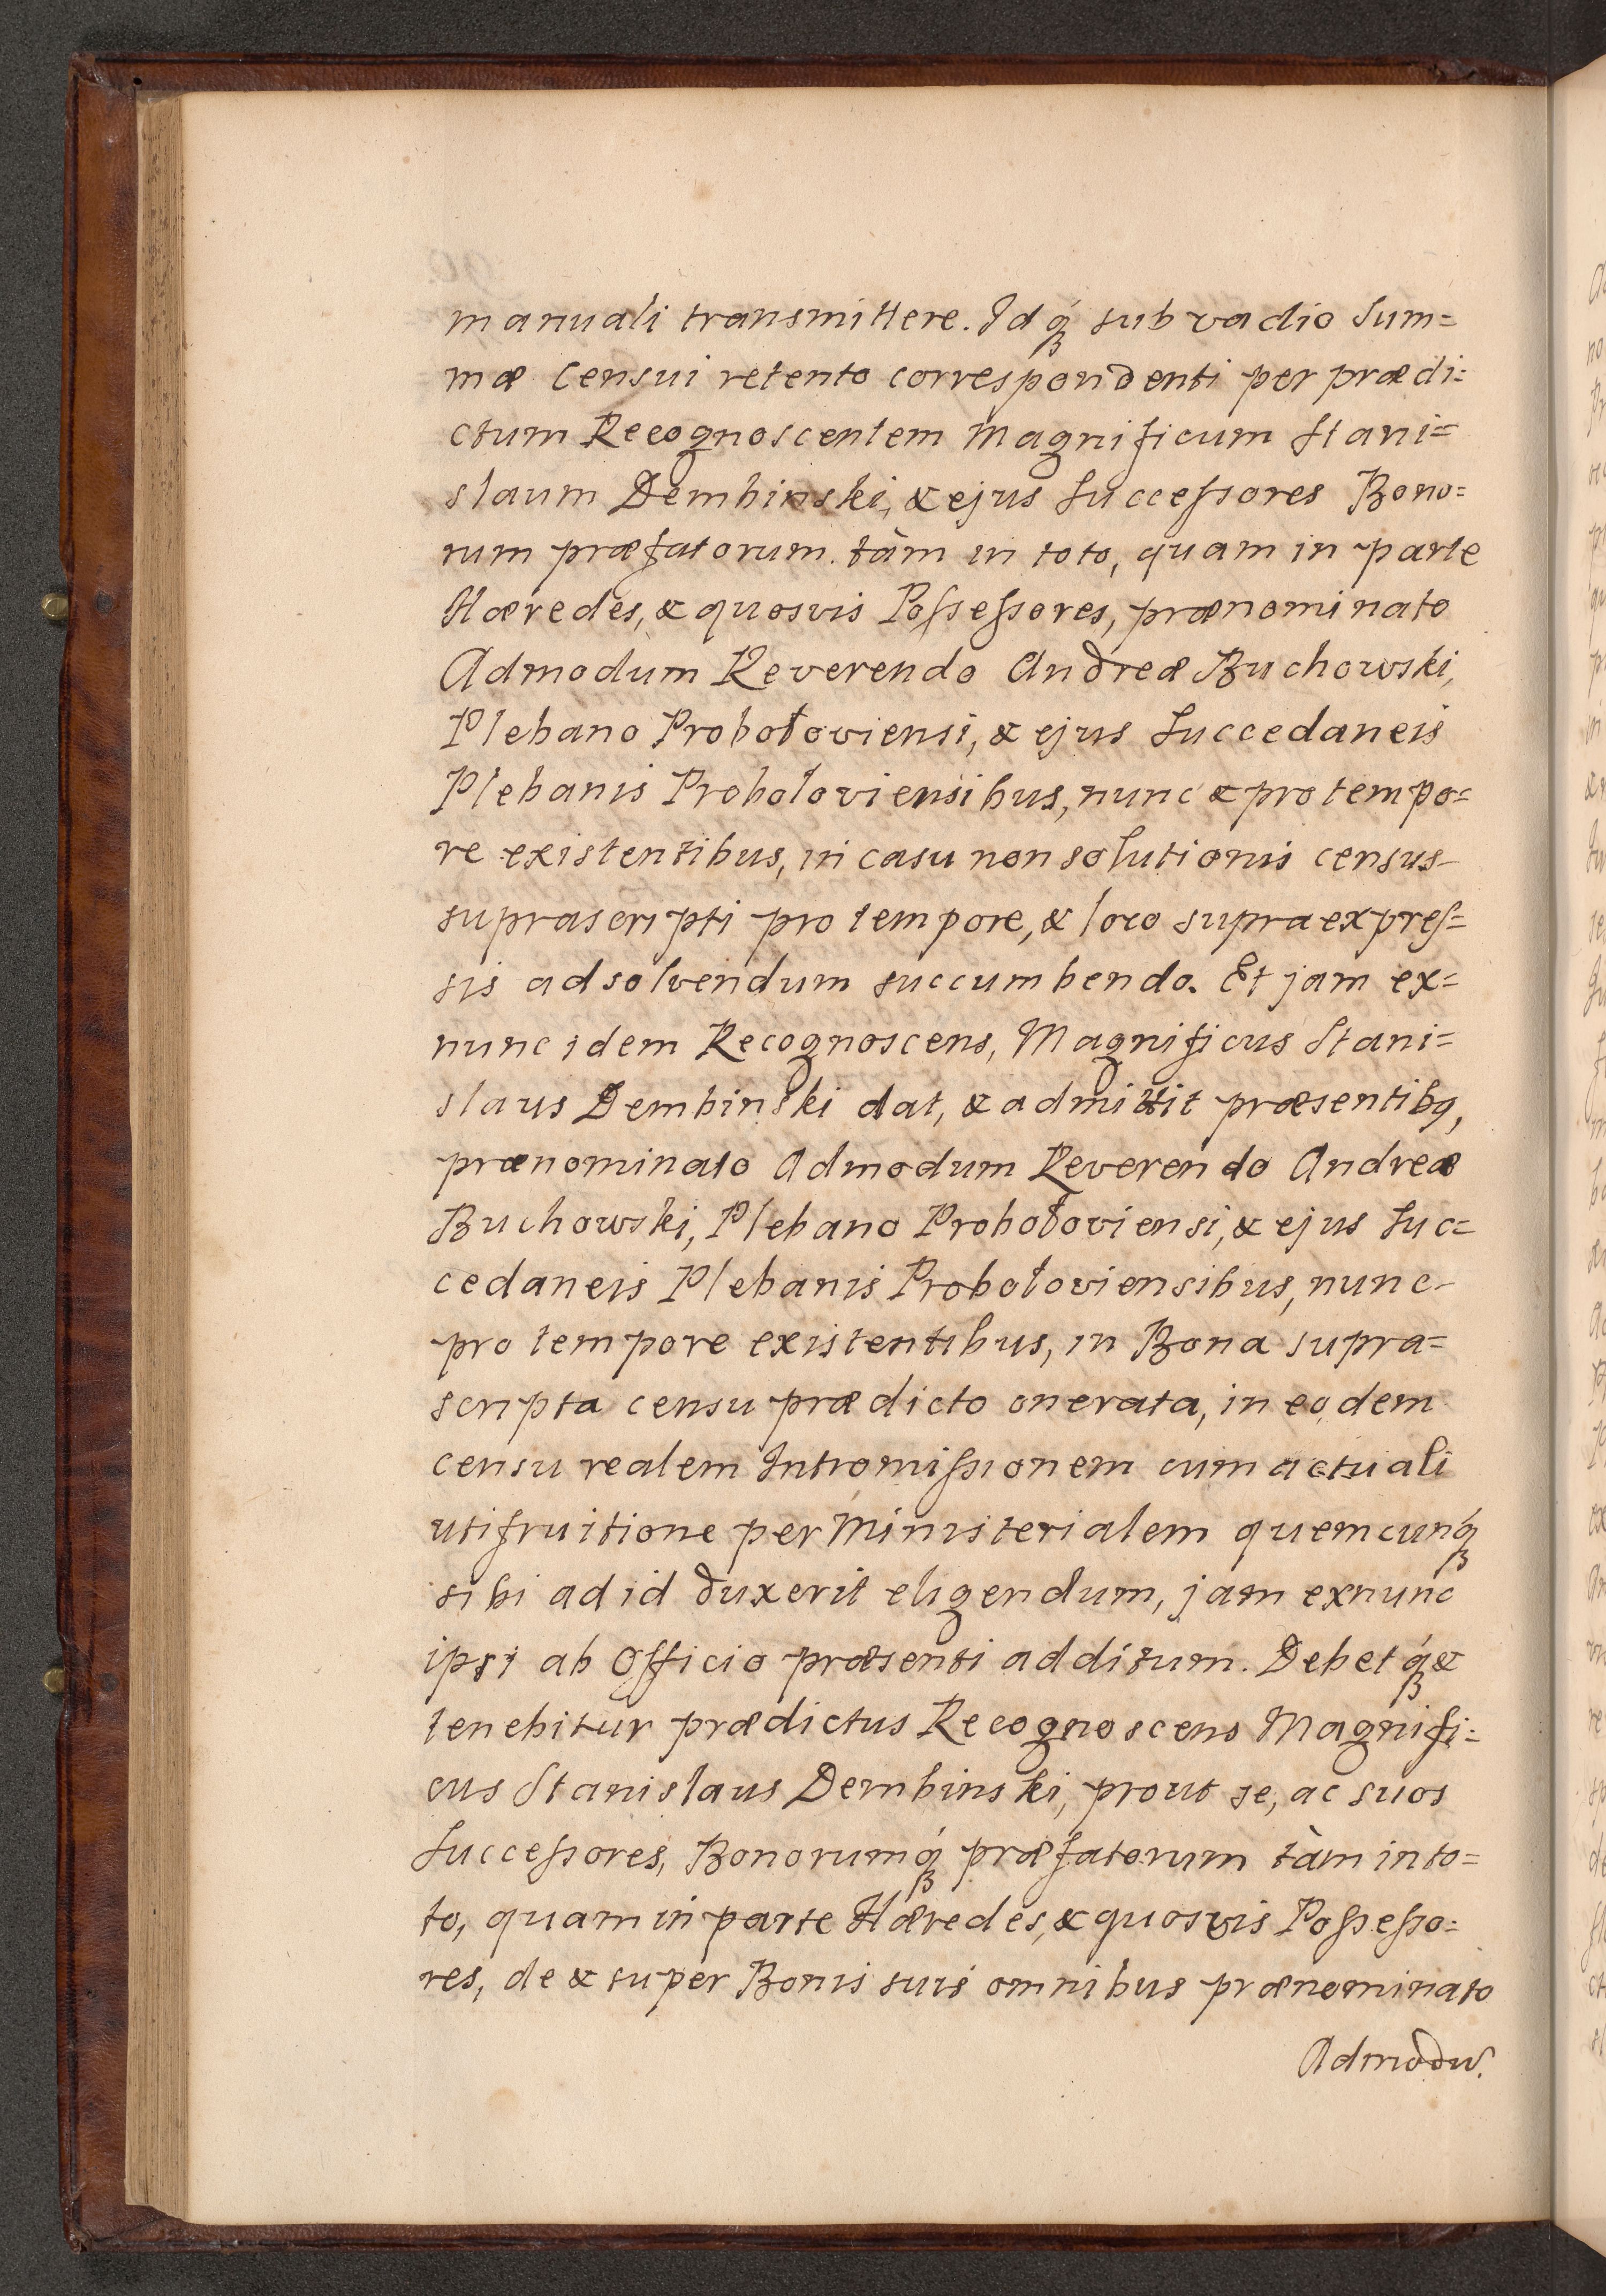 manuali transmittere. Idq́ꝫ sub vadio Sum=
mæ Censui retento correspondenti per prædi=
ctum Recognoscentem Magnificum Stani=
slaum Dembinski, & ejus Succeſsores Bono=
rum præfatorum tàm in toto, quam in parte
Hæredes, & quosvis Poſseſsores, prænominato
Admodum Reverendo Andreæ Buchowski,
Plebano Probołoviensi, & ejus Succedaneis
Plebanis Probołoviensibus, nunc & pro tempo=
re existentibus, in casu non solutionis census
suprascripti pro tempore, & loco supra expreſ=
sis ad solvendum succumbendo. Et jam ex=
nunc idem Recognoscens, Magnificus Stani=
slaus Dembinski dat, & admittit præsentibꝫ,
prænominato Admodum Reverendo Andreæ
Buchowski, Plebano Probołoviensi, & ejus Suc=
cedaneis Plebanis Probołoviensibus, nunc
pro tempore existentibus, in Bona supra=
scripta censu prædicto onerata, in eodem
censu realem Intromiſsionem cum actuali
utifruitione per Ministerialem quemcunq́ꝫ
sibi ad id duxerit eligendum, jam exnunc
ipsi ab Officio præsenti additum. Debetq́ꝫ &
tenebitur prædictus Recognoscens Magnifi=
cus Stanislaus Dembinski, prout se, ac suos
Succeſsores, Bonorumq́ꝫ præfatorum tàm in to=
to, quam in parte Hæredes, & quosvis Poſseſso=
res, de & super Bonis suis omnibus prænominato
Admodũ.